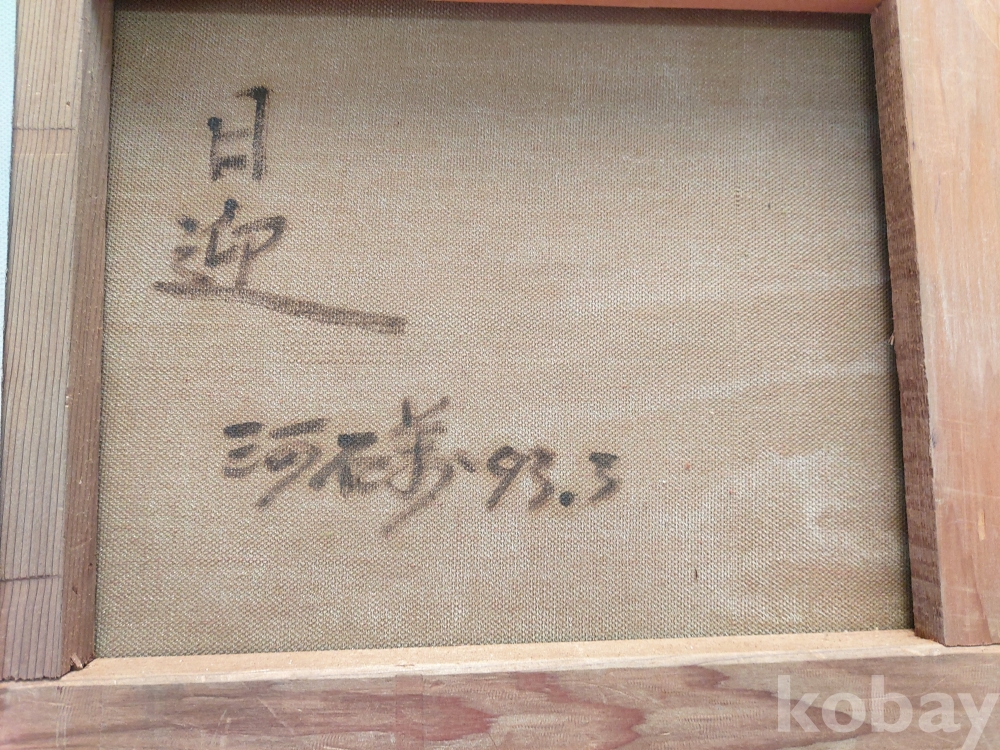 日迎
河石 93.3
kobay